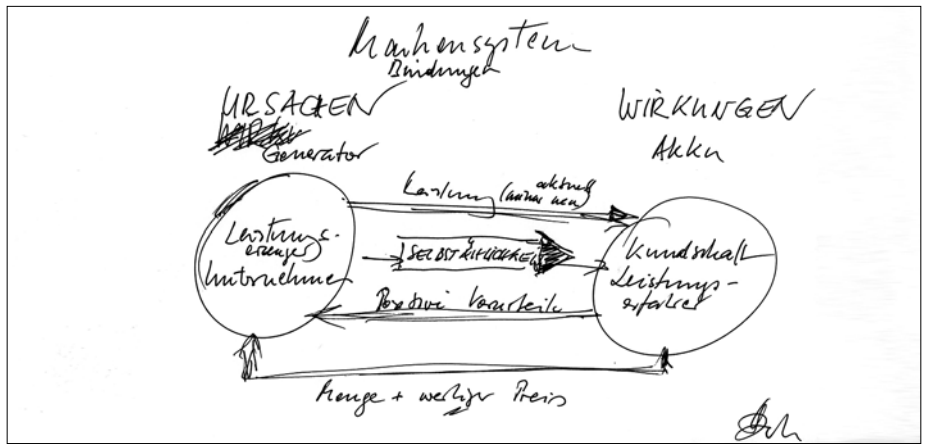 Markensystem
Bindungen
URSACHEN
Generator
WIRKUNGEN
Akku
Leistung (aktuell
immer neu)
Leistungs-
erzeuger
Unternehmen
SELBSTÄHNLICHKEIT
Kundschaft
Leistungs-
Positive Vorurteile
Menge + wertiger Preis